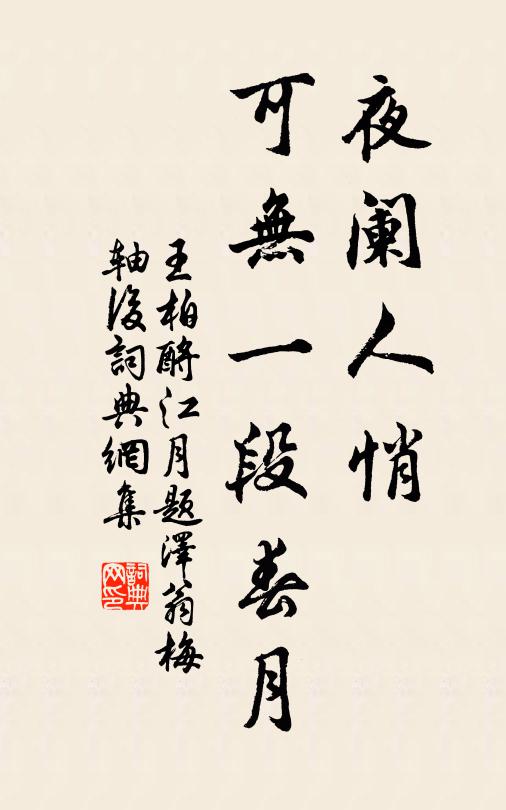 夜阑人悄
可無一段春月
王柏酹江月題澤翁梅
軸後詞典網集
詞典
网印